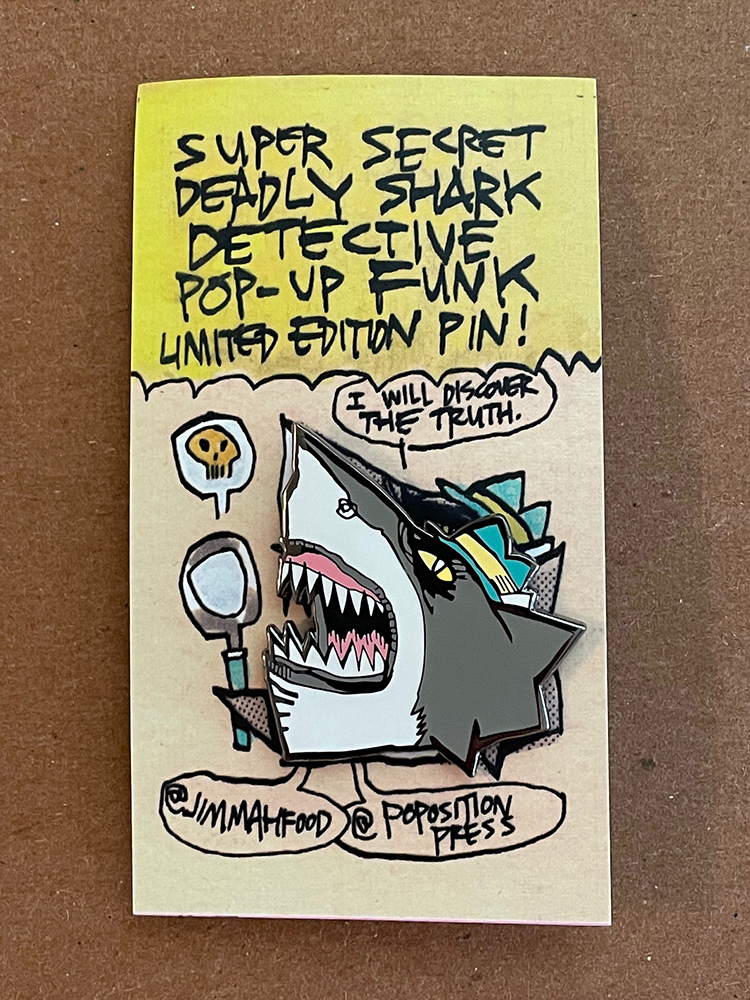 SUPER SECRET
DEADLY SHARK
DETECTIVE
POP-UP FUNK
LIMITED EDITION PIN!
I WILL DISCOVER
THE TRUTH.
@JIMMAHFOOD
@POPOSITION
PRESS